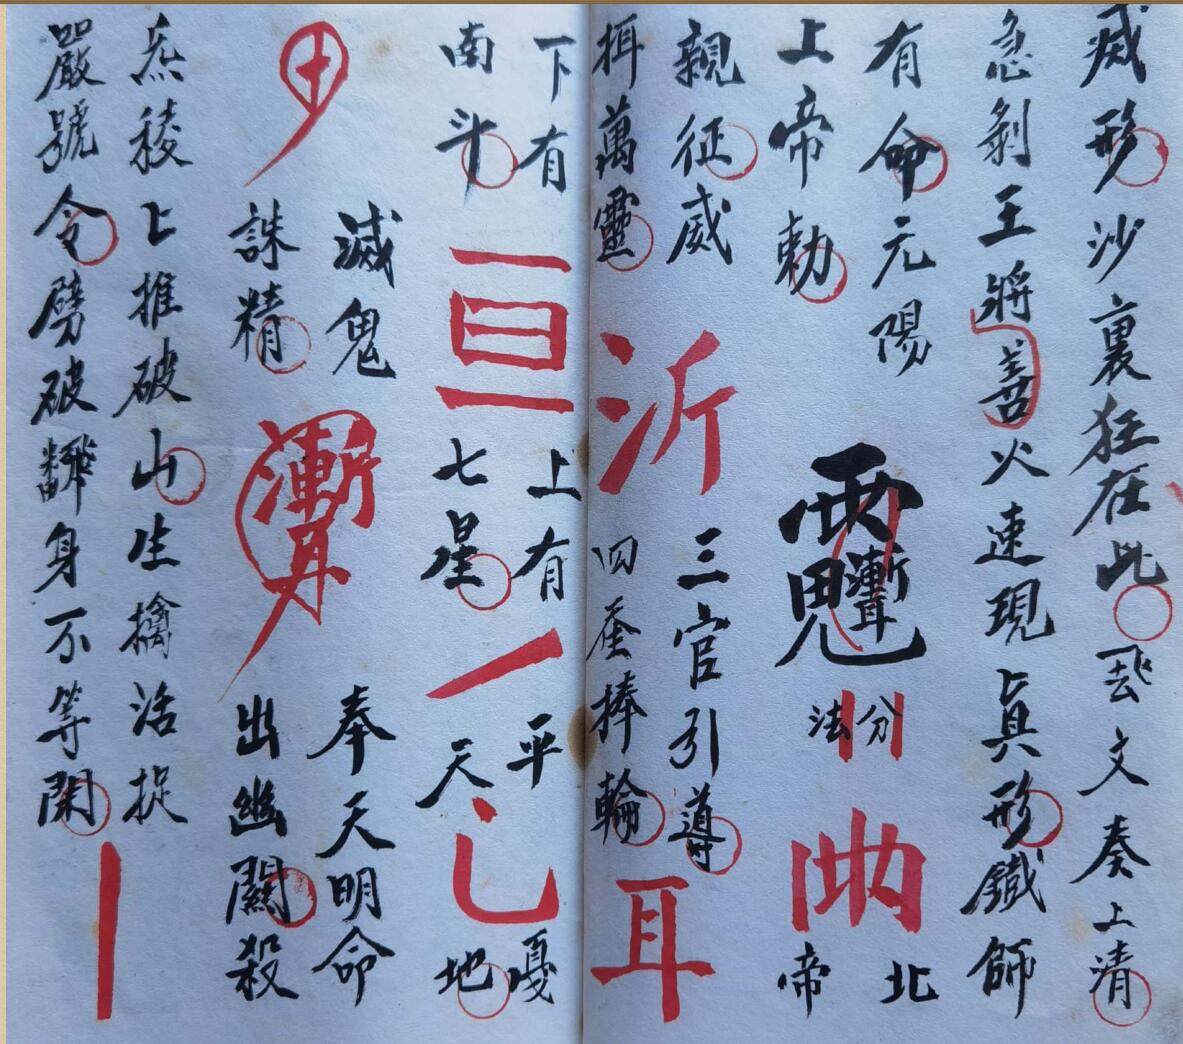 威形沙裏狂在此 文奏上清
急剝王將善火速現真形鐵師
有命元陽
上帝勅
法分
北帝
親征威
揖萬靈
三官引導
四 捧輪
耳
下有
南斗
上有
七星
平天
戛地
滅鬼
誅精
奉天明命
出幽關殺
稜上推破山生擒活捉
嚴號令劈破 身不等閑